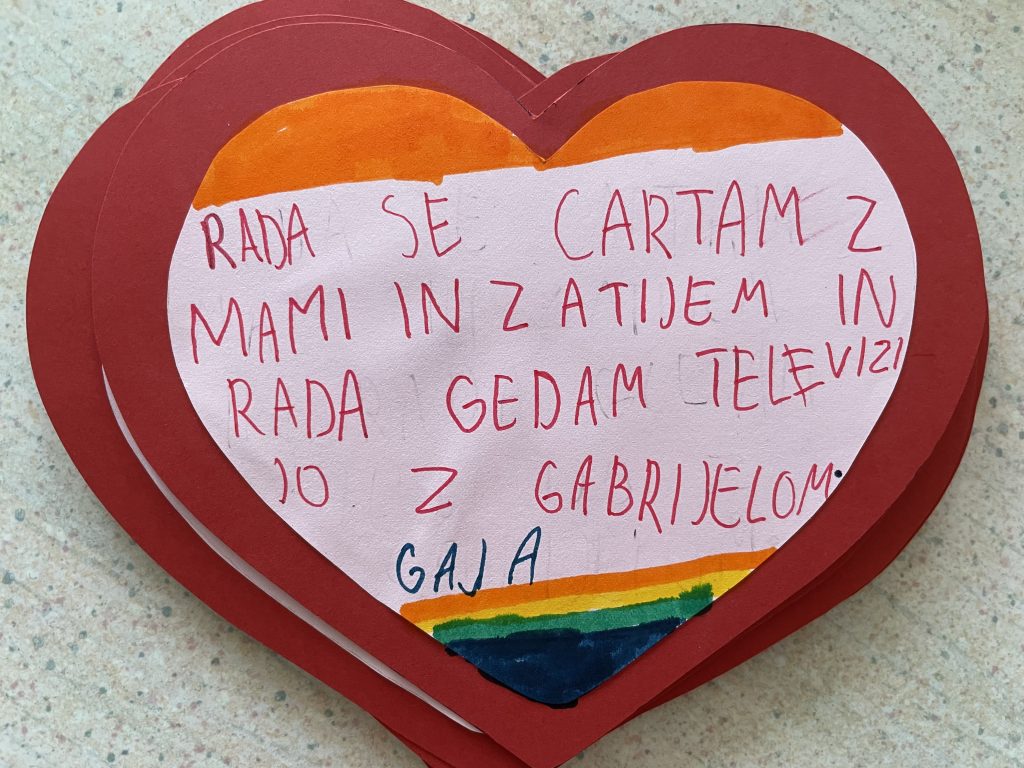 RADA SE CARTAM Z
MAMI IN Z ATIJEM IN
RADA GEDAM TELEVIZI
JO Z GABRIJELOM.
GAJA